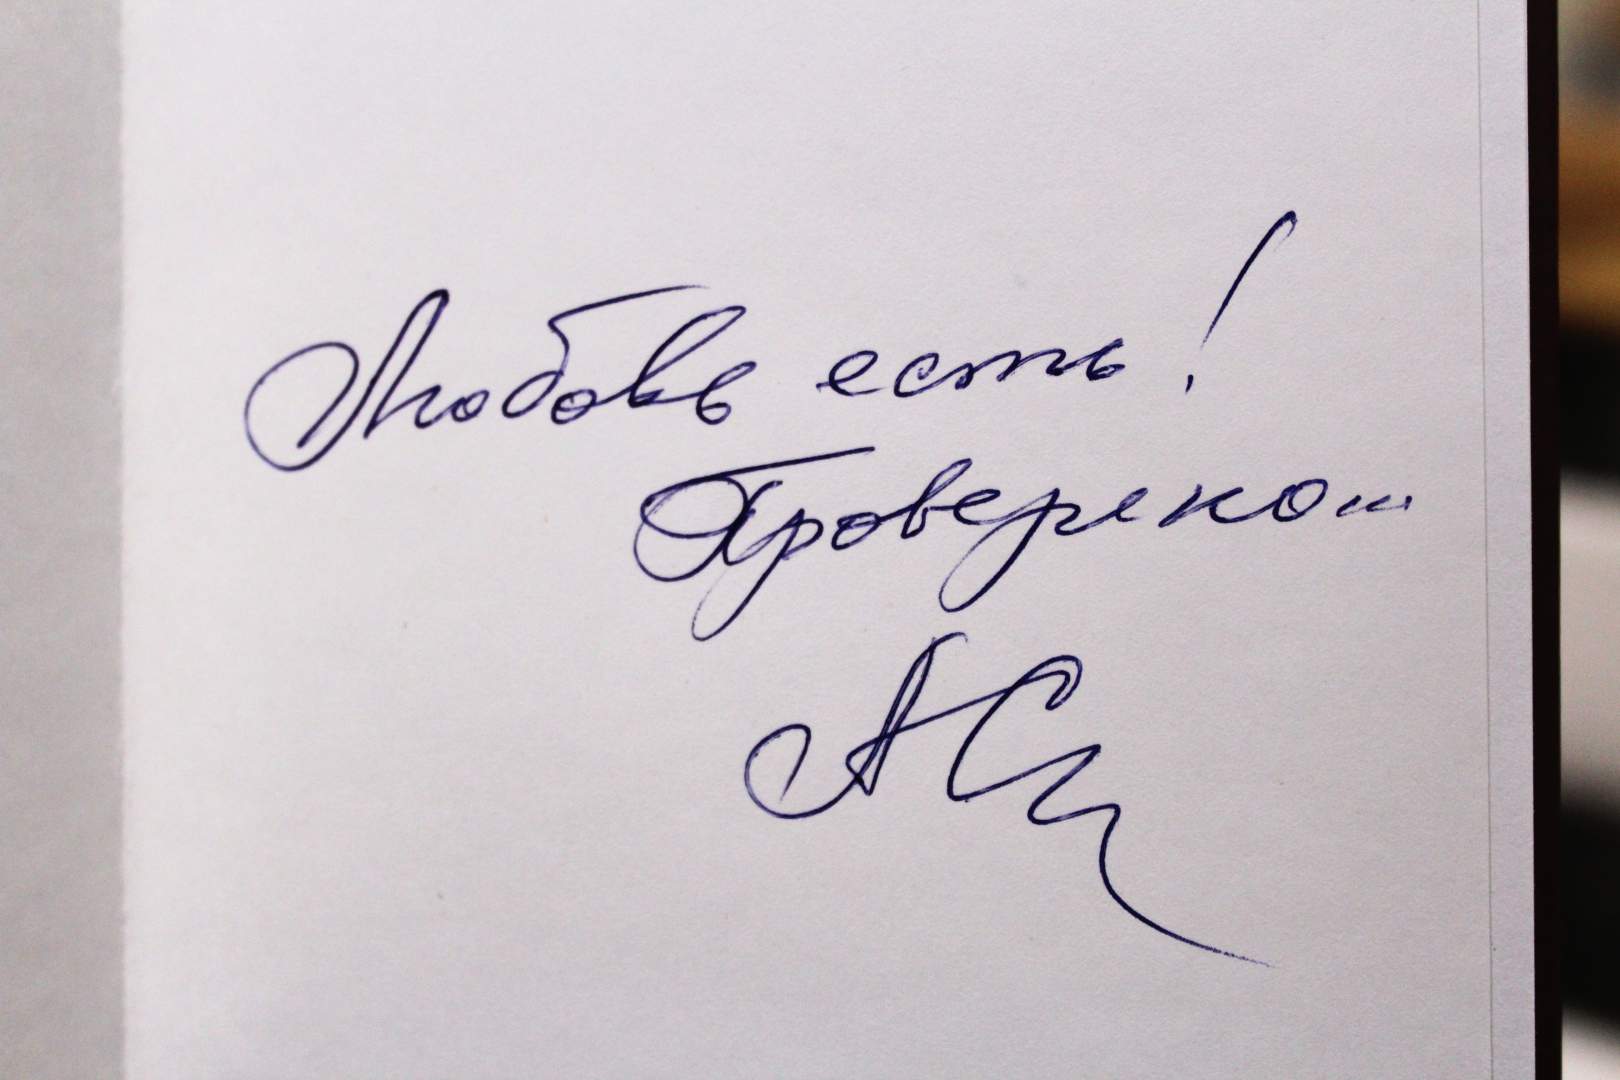 Любовь есть!
Проверено...